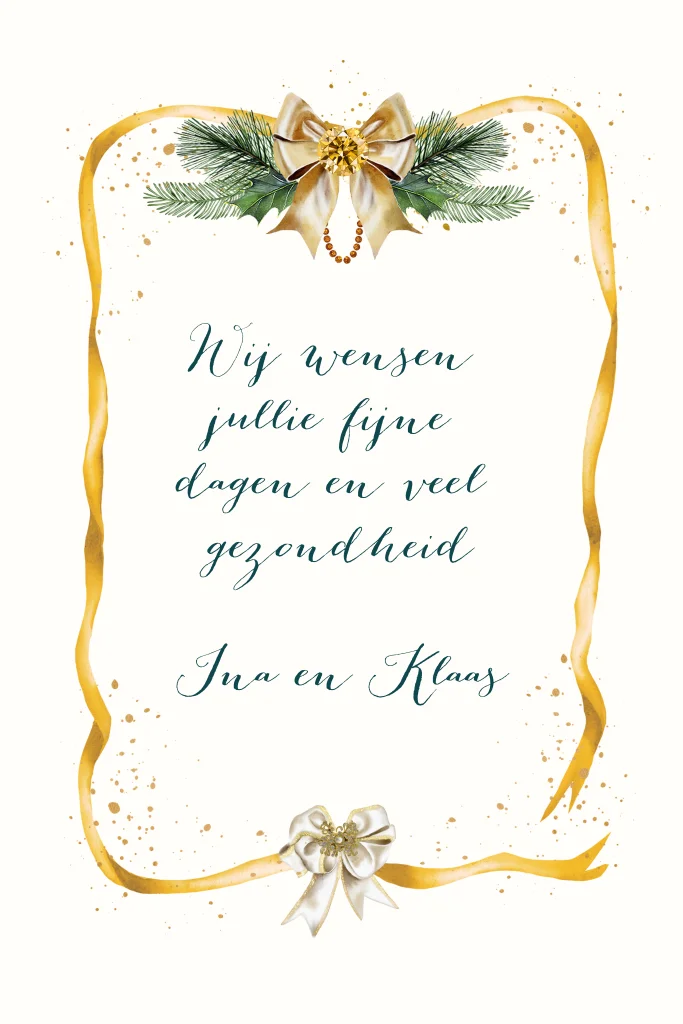 Wij wensen
jullie fijne
dagen en veel
gezondheid
Ina en Klaas